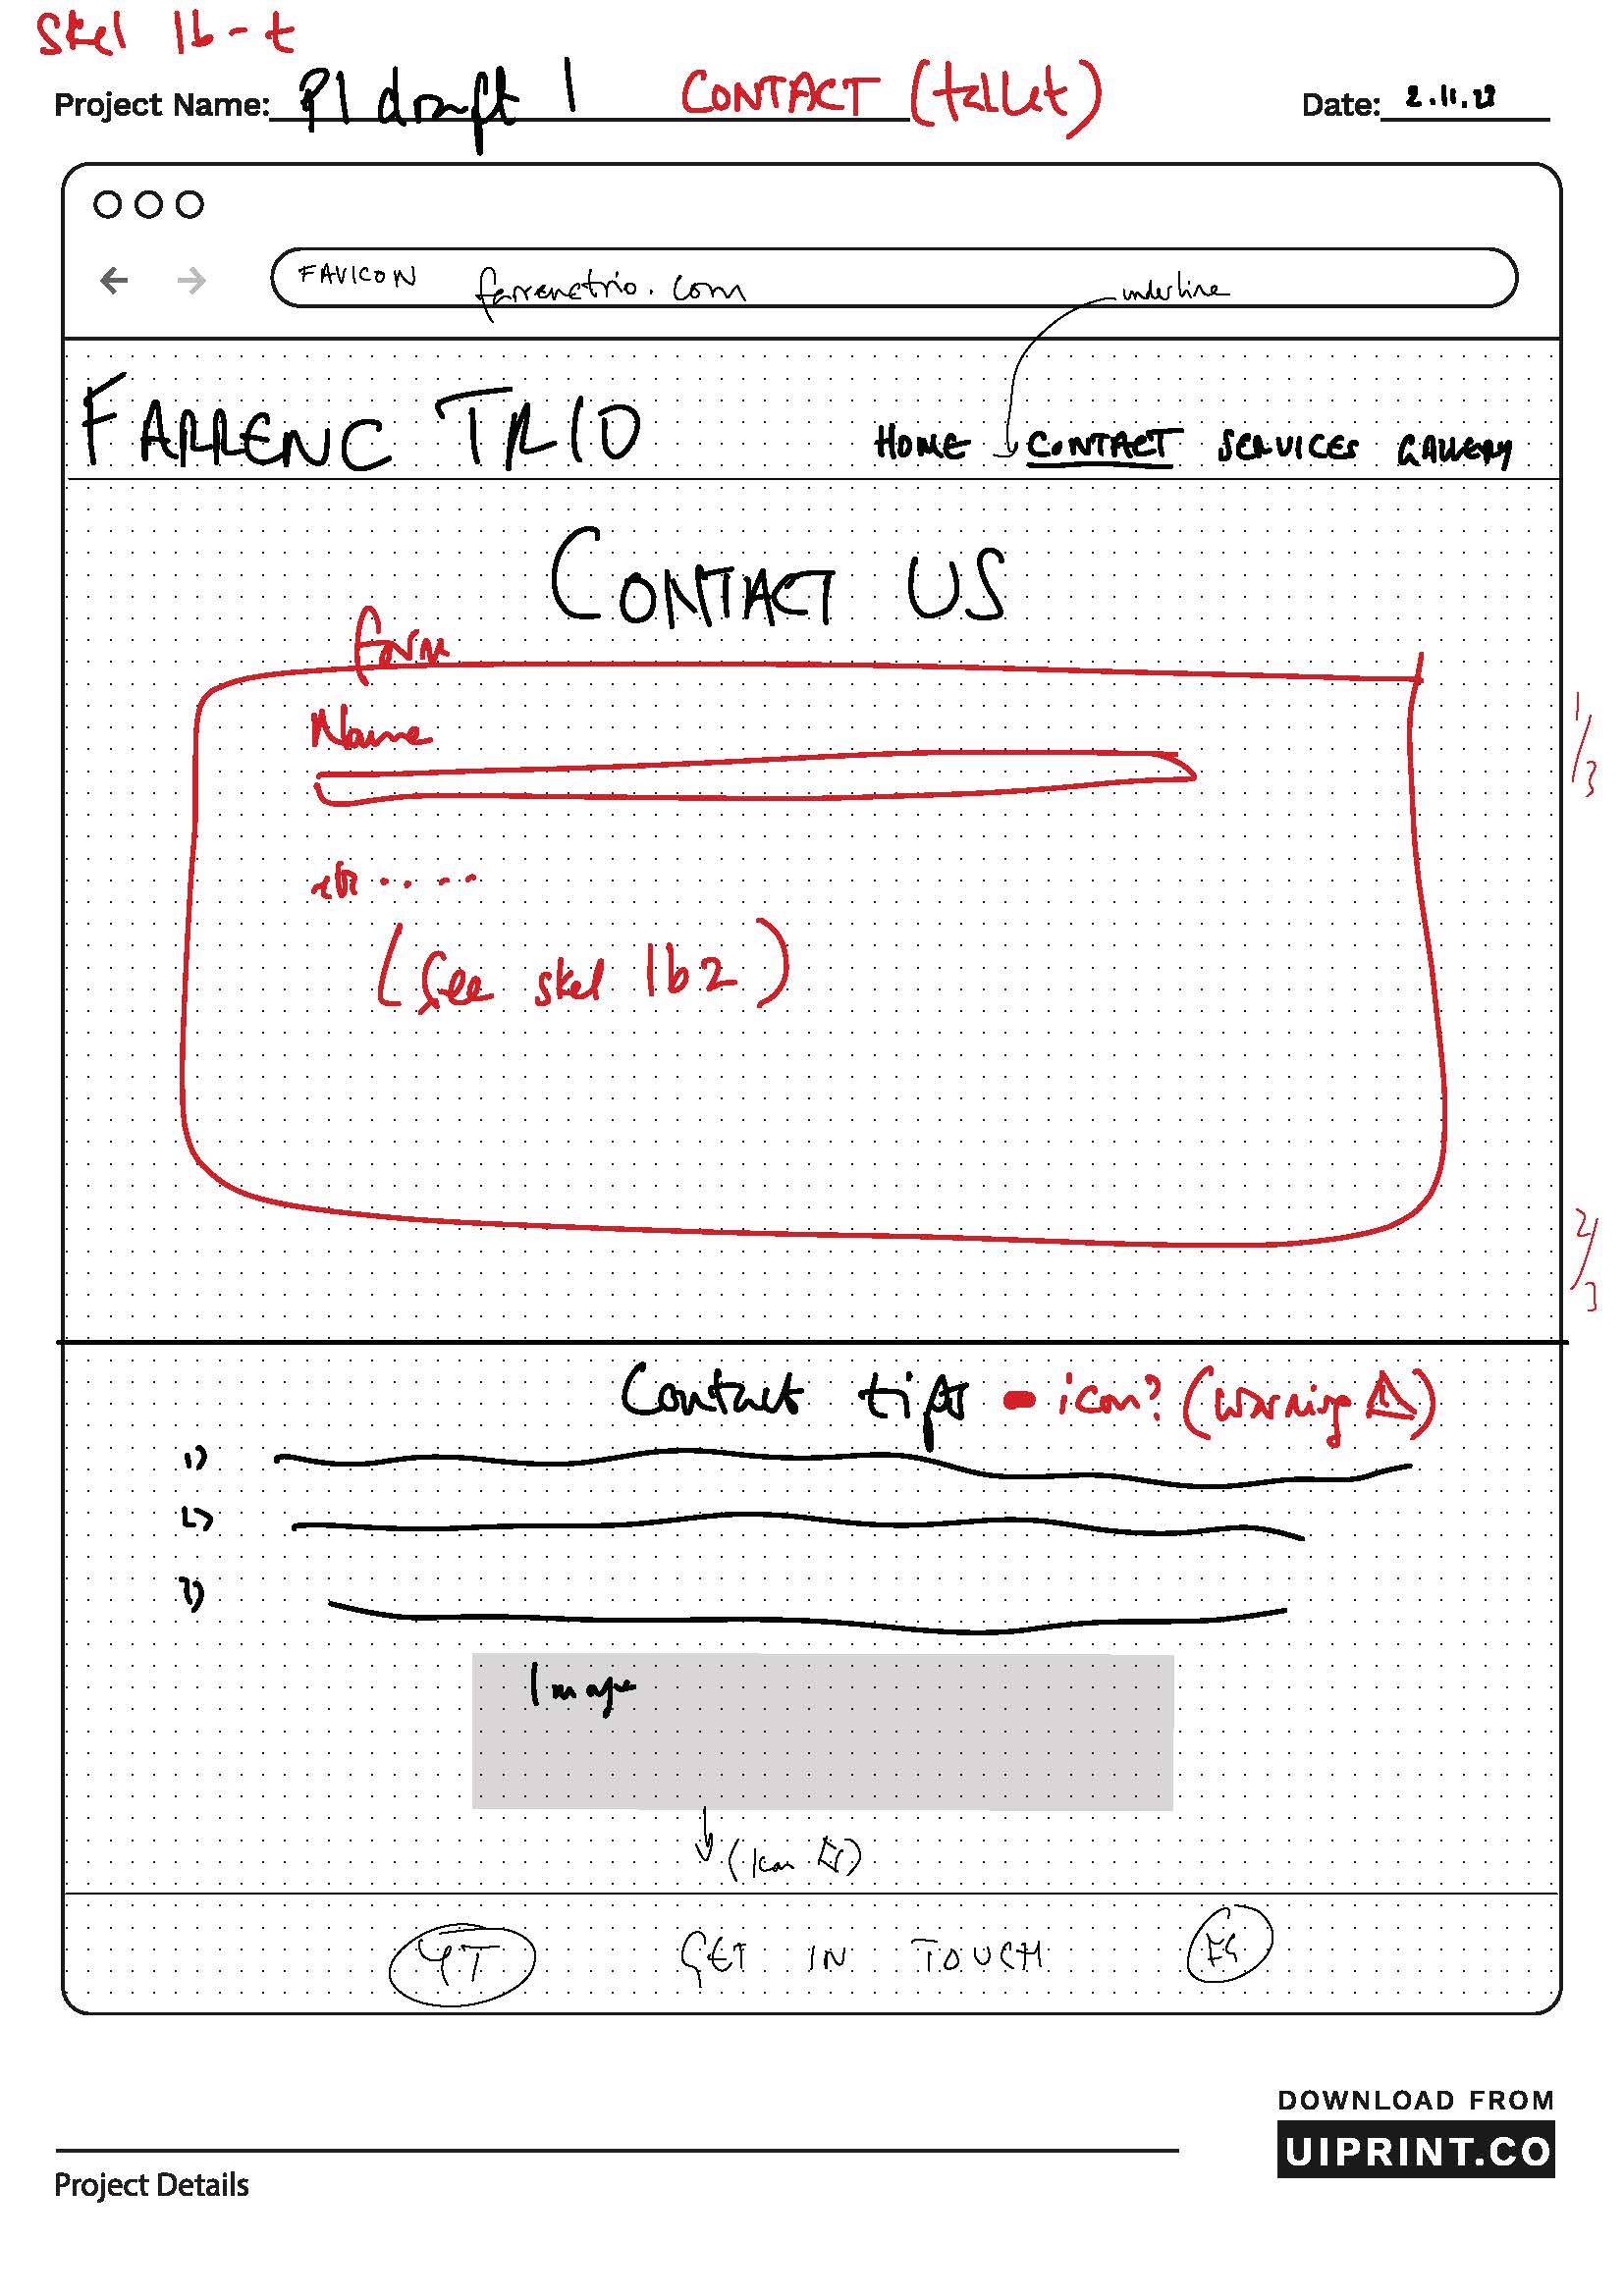 Skel 1b-t
Project Name: P1 draft 1 CONTACT (tablet) Date: 2.11.22
FAVICON farrenctrio.com underline
FARRENC TRIO HOME CONTACT SERVICES GALLERY
CONTACT US
form
Name
1/3
etc.....
(See skel 1b2)
2/3
Contact tips - icon? (Warning !)
1)
2)
3)
Image
(Icon)
YT GET IN TOUCH
DOWNLOAD FROM
UIPRINT.CO
Project Details